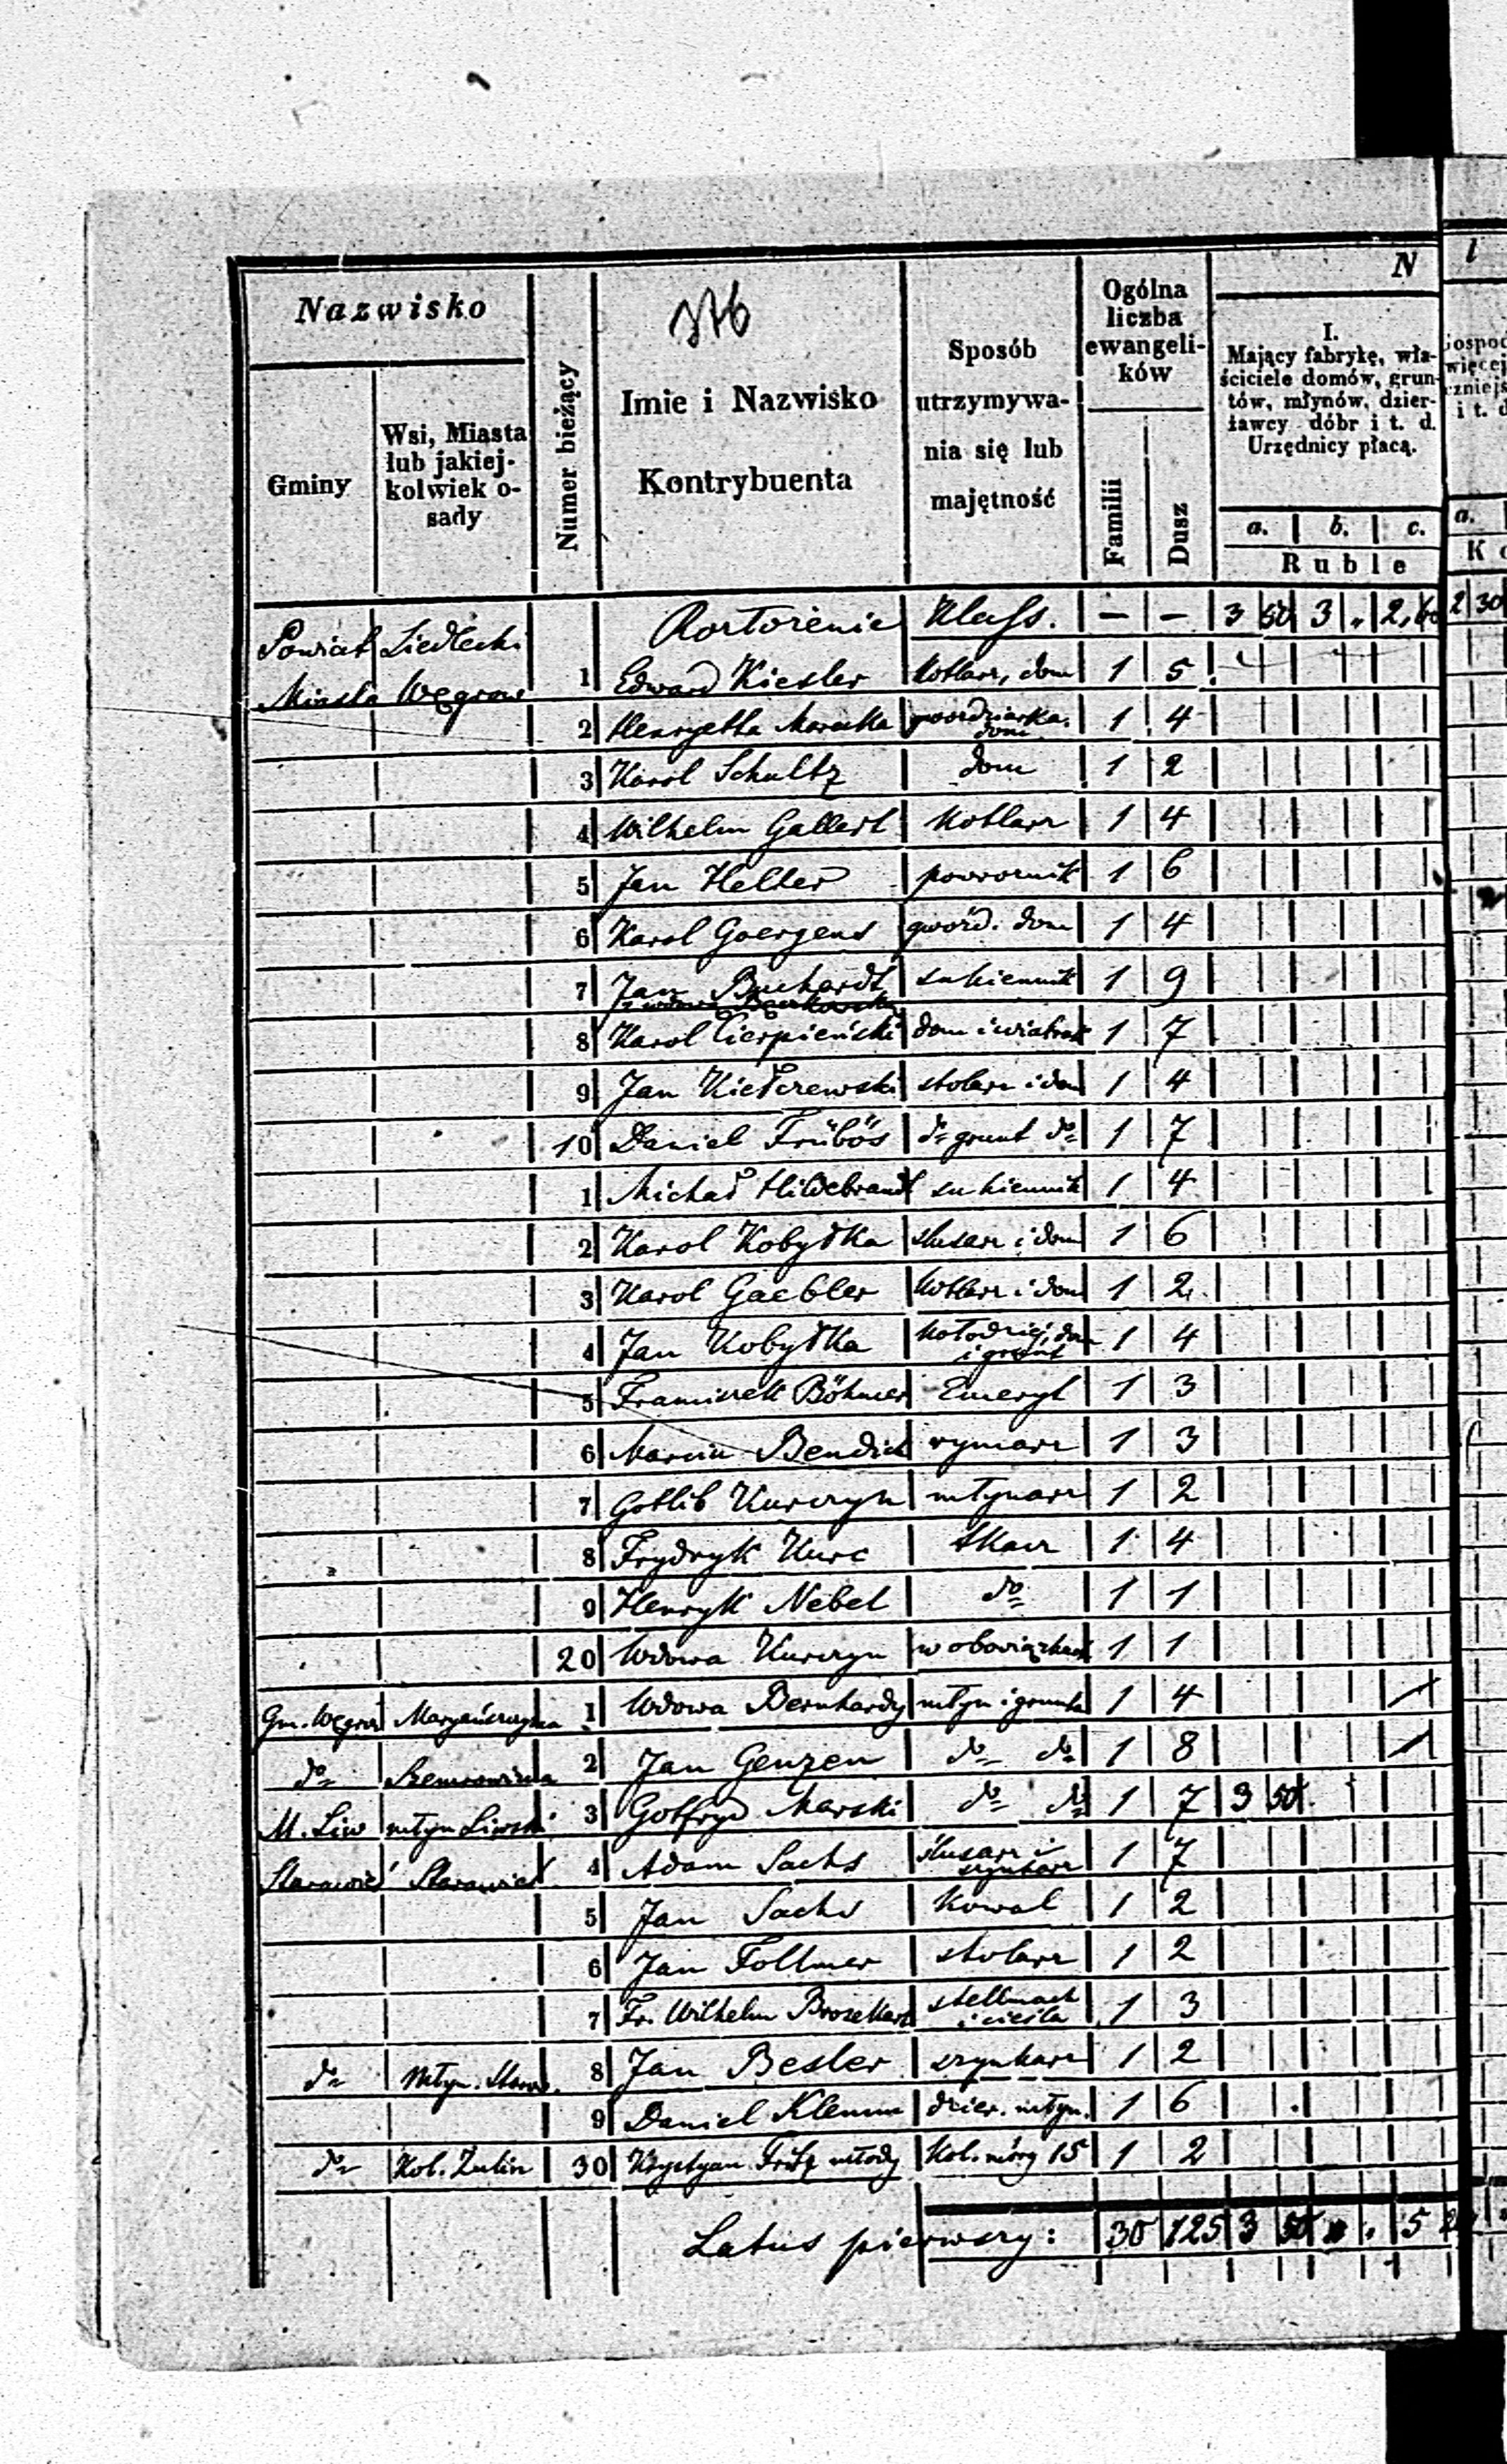 N
Nazwisko
Gminy
Wsi, Miasta
lub jakiej-
kolwiek o-
sady
Numer bieżący
Imie i Nazwisko
Kontrybuenta
Sposób
utrzymywa-
nia się lub
majętność
Ogólna
liczba
ewangeli-
ków
Familii
Dusz
I.
Mający fabrykę, wła-
ściciele domów, grun-
tów, młynów, dzier-
żawcy dóbr i t. d.
Urzędnicy płacą.
a. b. c.
Ruble
Powiat Siedlecki Rozłożenie Klass. — — 3 50 3 „ 2,60 2 30
Miasto Węgrow 1 Edward Kiesler kotlarz, dom 1 5
2 Henryetta dom 1 4
3 Karol Schultz dom 1 2
4 Wilhelm Gallert Kotlarz 1 4
5 Jan Heller powroznik 1 6
6 Karol Goergens gwoźd. dom 1 4
7 Jan Buchardt sukiennik 1 9
8 Karol Cierpieński dom i wiatrak 1 7
9 Jan Kiełczewski stolarz i dom 1 4
10 Daniel Frübös do grunt do 1 7
1 Michał Hildebrandt sukiennik 1 4
2 Karol Kobyłka slusarz i dom 1 6
3 Karol Gaebler kotlarz i dom 1 2
4 Jan Kobyłka kołodziej, dom i grunt 1 4
5 Franciszek Böhmer Emeryt 1 3
6 Marcin Bendich rymarz 1 3
7 Gotlib Kurczyn młynarz 1 2
8 Frydryk Kurc tkacz 1 4
9 Henryk Nebel do 1 1
20 Wdowa Kurczyn w obowiązkach 1 1
Gm. Węgrow 1 Wdowa Bernhardy młyn i grunta 1 4
do 2 Jan Genzen do do 1 8
M. Liw młyn Liwski 3 Gotfryd Marski do do 1 7 3 50
Starawieś Starawieś 4 Adam Sachs ślusarz i szynkarz 1 7
5 Jan Sachs Kowal 1 2
6 Jan Follmer stolarz 1 2
7 Fr. Wilhelm stellmach i cieśla 1 3
do Młyn. Staraw. 8 Jan Besler szynkarz 1 2
9 Daniel Klemm dzier. młyn. 1 6
do Kol. Zulin 30 Krystyan Fritz młody Kol. mórg 15 1 2
Latus pierwszy: 30 125 3 50 „ . 5